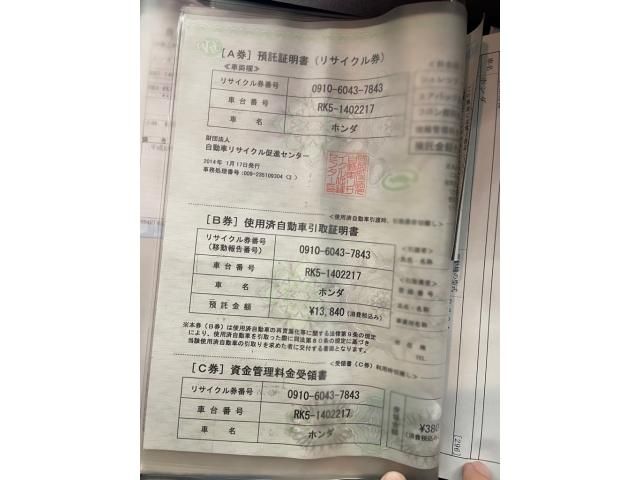 [A券] 預託証明書(リサイクル券)
≪車両欄≫
リサイクル券番号 0910-6043-7843
車台番号 RK5-1402217
車名 ホンダ
財団法人
自動車リサイクル促進センター
2014年 1月17日発行
事務処理番号:009-235109304 〈3 〉
<使用済自動車引渡時、
[B券] 使用済自動車引取証明書
リサイクル券番号
(移動報告番号) 0910-6043-7843
車台番号 RK5-1402217
車名 ホンダ
預託金額 ¥13,840 (消費税込み)
※本券(B券)は使用済自動車の再資源化等に関する法律第9条の規定
により、使用済自動車を引取った際に同法第80条の規定に基づき
当該使用済自動車の引取りを求めた者に交付する書面となります。
<受領書(C券)利用時切離し>
[C券] 資金管理料金受領書
リサイクル券番号 0910-6043-7843
車台番号 RK5-1402217
車名 ホンダ
¥380
(消費税込み)
[296]